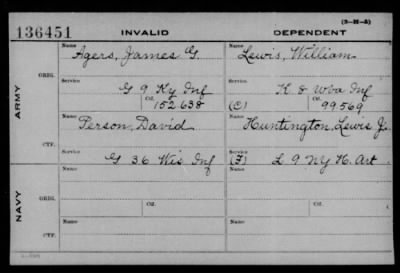 (3-M-5)
136451 INVALID DEPENDENT
Name Name
Agers, James G. Lewis, William
ARMY
ORIG.
Service Service
G 9 Ky Inf K 8 Wva Inf
Ctf. Ctf.
152638 (C) 99569
Name Name
Person, David Huntington, Lewis J.
CTF.
Service Service
G 36 Wis Inf (F) L 9 NY H. Art
NAVY
Name Name
ORIG.
Ctf. Ctf.
Name Name
CTF.